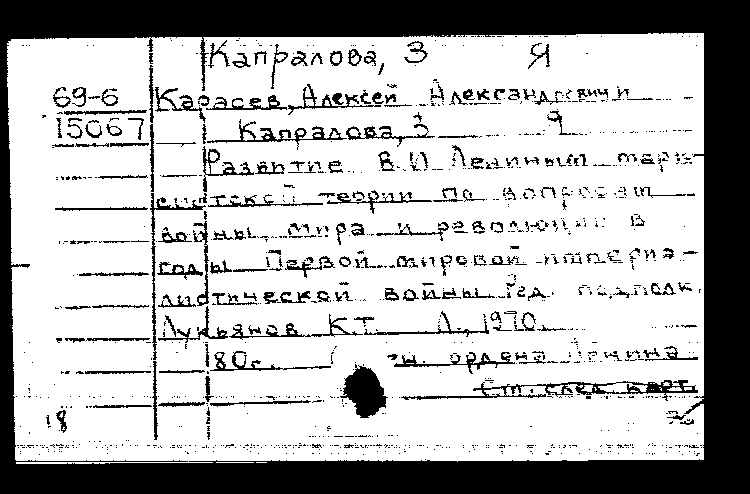 Капралова, З Я
69-6 Карасев, Алексей Александрович и
15067 Капралова, З Я
Развитие В.И Лениным марк-
систской теории по вопросам
войны, мира и революции в
годы Первой мировой империа-
листической войны Ред. подполк.
Лукьянов К.Т. Л., 1970.
80с. ордена Ленина
См. след. карт.
18